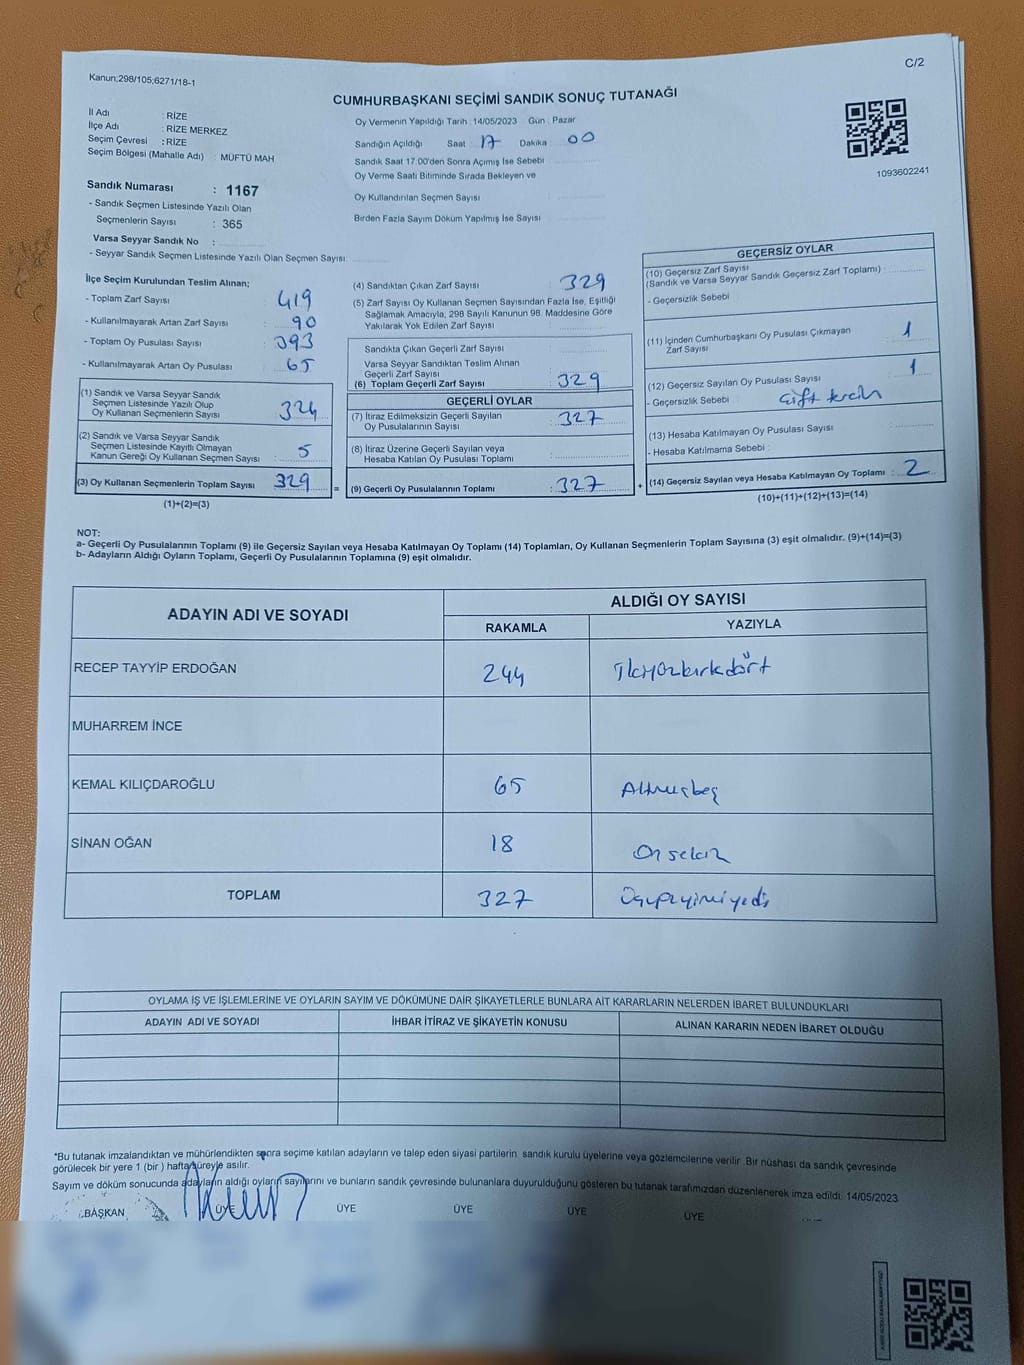 C/2
Kanun;298/105,6271/18-1
CUMHURBAŞKANI SEÇİMİ SANDIK SONUÇ TUTANAĞI
İl Adı : RİZE
İlçe Adı : RİZE MERKEZ
Seçim Çevresi : RİZE
Seçim Bölgesi (Mahalle Adı) : MÜFTÜ MAH
Oy Vermenin Yapıldığı Tarih : 14/05/2023 Gün : Pazar
Sandığın Açıldığı Saat : 17 Dakika : 00
Sandık Saat 17.00'den Sonra Açımış İse Sebebi
Oy Verme Saati Bitiminde Sırada Bekleyen ve
Oy Kullandırılan Seçmen Sayısı
Birden Fazla Sayım Döküm Yapılmış İse Sayısı
1093602241
Sandık Numarası : 1167
- Sandık Seçmen Listesinde Yazılı Olan
Seçmenlerin Sayısı : 365
Varsa Seyyar Sandık No :
- Seyyar Sandık Seçmen Listesinde Yazılı Olan Seçmen Sayısı:
İlçe Seçim Kurulundan Teslim Alınan;
- Toplam Zarf Sayısı : 419
- Kullanılmayarak Artan Zarf Sayısı : 90
- Toplam Oy Pusulası Sayısı : 393
- Kullanılmayarak Artan Oy Pusulası : 65
(1) Sandık ve Varsa Seyyar Sandık
Seçmen Listesinde Yazılı Olup
Oy Kullanan Seçmenlerin Sayısı : 324
(2) Sandık ve Varsa Seyyar Sandık
Seçmen Listesinde Kayıtlı Olmayan
Kanun Gereği Oy Kullanan Seçmen Sayısı : 5
(3) Oy Kullanan Seçmenlerin Toplam Sayısı : 329 =
(1)+(2)=(3)
(4) Sandıktan Çıkan Zarf Sayısı : 329
(5) Zarf Sayısı Oy Kullanan Seçmen Sayısından Fazla İse, Eşitliği
Sağlamak Amacıyla, 298 Sayılı Kanunun 98. Maddesine Göre
Yakılarak Yok Edilen Zarf Sayısı :
Sandıkta Çıkan Geçerli Zarf Sayısı :
Varsa Seyyar Sandıktan Teslim Alınan
Geçerli Zarf Sayısı :
(6) Toplam Geçerli Zarf Sayısı : 329
GEÇERLİ OYLAR
(7) İtiraz Edilmeksizin Geçerli Sayılan
Oy Pusulalarının Sayısı : 327
(8) İtiraz Üzerine Geçerli Sayılan veya
Hesaba Katılan Oy Pusulası Toplamı :
(9) Geçerli Oy Pusulalarının Toplamı : 327 +
GEÇERSİZ OYLAR
(10) Geçersiz Zarf Sayısı
(Sandık ve Varsa Seyyar Sandık Geçersiz Zarf Toplamı) :
- Geçersizlik Sebebi
(11) İçinden Cumhurbaşkanı Oy Pusulası Çıkmayan
Zarf Sayısı : 1
(12) Geçersiz Sayılan Oy Pusulası Sayısı : 1
- Geçersizlik Sebebi : Çift tercih
(13) Hesaba Katılmayan Oy Pusulası Sayısı :
- Hesaba Katılmama Sebebi :
(14) Geçersiz Sayılan veya Hesaba Katılmayan Oy Toplamı : 2
(10)+(11)+(12)+(13)=(14)
NOT:
a- Geçerli Oy Pusulalarının Toplamı (9) ile Geçersiz Sayılan veya Hesaba Katılmayan Oy Toplamı (14) Toplamları, Oy Kullanan Seçmenlerin Toplam Sayısına (3) eşit olmalıdır. (9)+(14)=(3)
b- Adayların Aldığı Oyların Toplamı, Geçerli Oy Pusulalarının Toplamına (9) eşit olmalıdır.
ADAYIN ADI VE SOYADI
ALDIĞI OY SAYISI
RAKAMLA YAZIYLA
RECEP TAYYİP ERDOĞAN 244 İkiyüzkırkdört
MUHARREM İNCE
KEMAL KILIÇDAROĞLU 65 Altmışbeş
SİNAN OĞAN 18 Onsekiz
TOPLAM 327 Üçyüzyirmiyedi
OYLAMA İŞ VE İŞLEMLERİNE VE OYLARIN SAYIM VE DÖKÜMÜNE DAİR ŞİKAYETLERLE BUNLARA AİT KARARLARIN NELERDEN İBARET BULUNDUKLARI
ADAYIN ADI VE SOYADI İHBAR İTİRAZ VE ŞİKAYETİN KONUSU ALINAN KARARIN NEDEN İBARET OLDUĞU
*Bu tutanak imzalandıktan ve mühürlendikten sonra seçime katılan adayların ve talep eden siyasi partilerin sandık kurulu üyelerine veya gözlemcilerine verilir. Bir nüshası da sandık çevresinde
görülecek bir yere 1 (bir ) hafta süreyle asılır.
Sayım ve döküm sonucunda adayların aldığı oyların sayılarını ve bunların sandık çevresinde bulunanlara duyurulduğunu gösteren bu tutanak tarafımızdan düzenlenerek imza edildi. 14/05/2023
BAŞKAN ÜYE ÜYE ÜYE ÜYE ÜYE